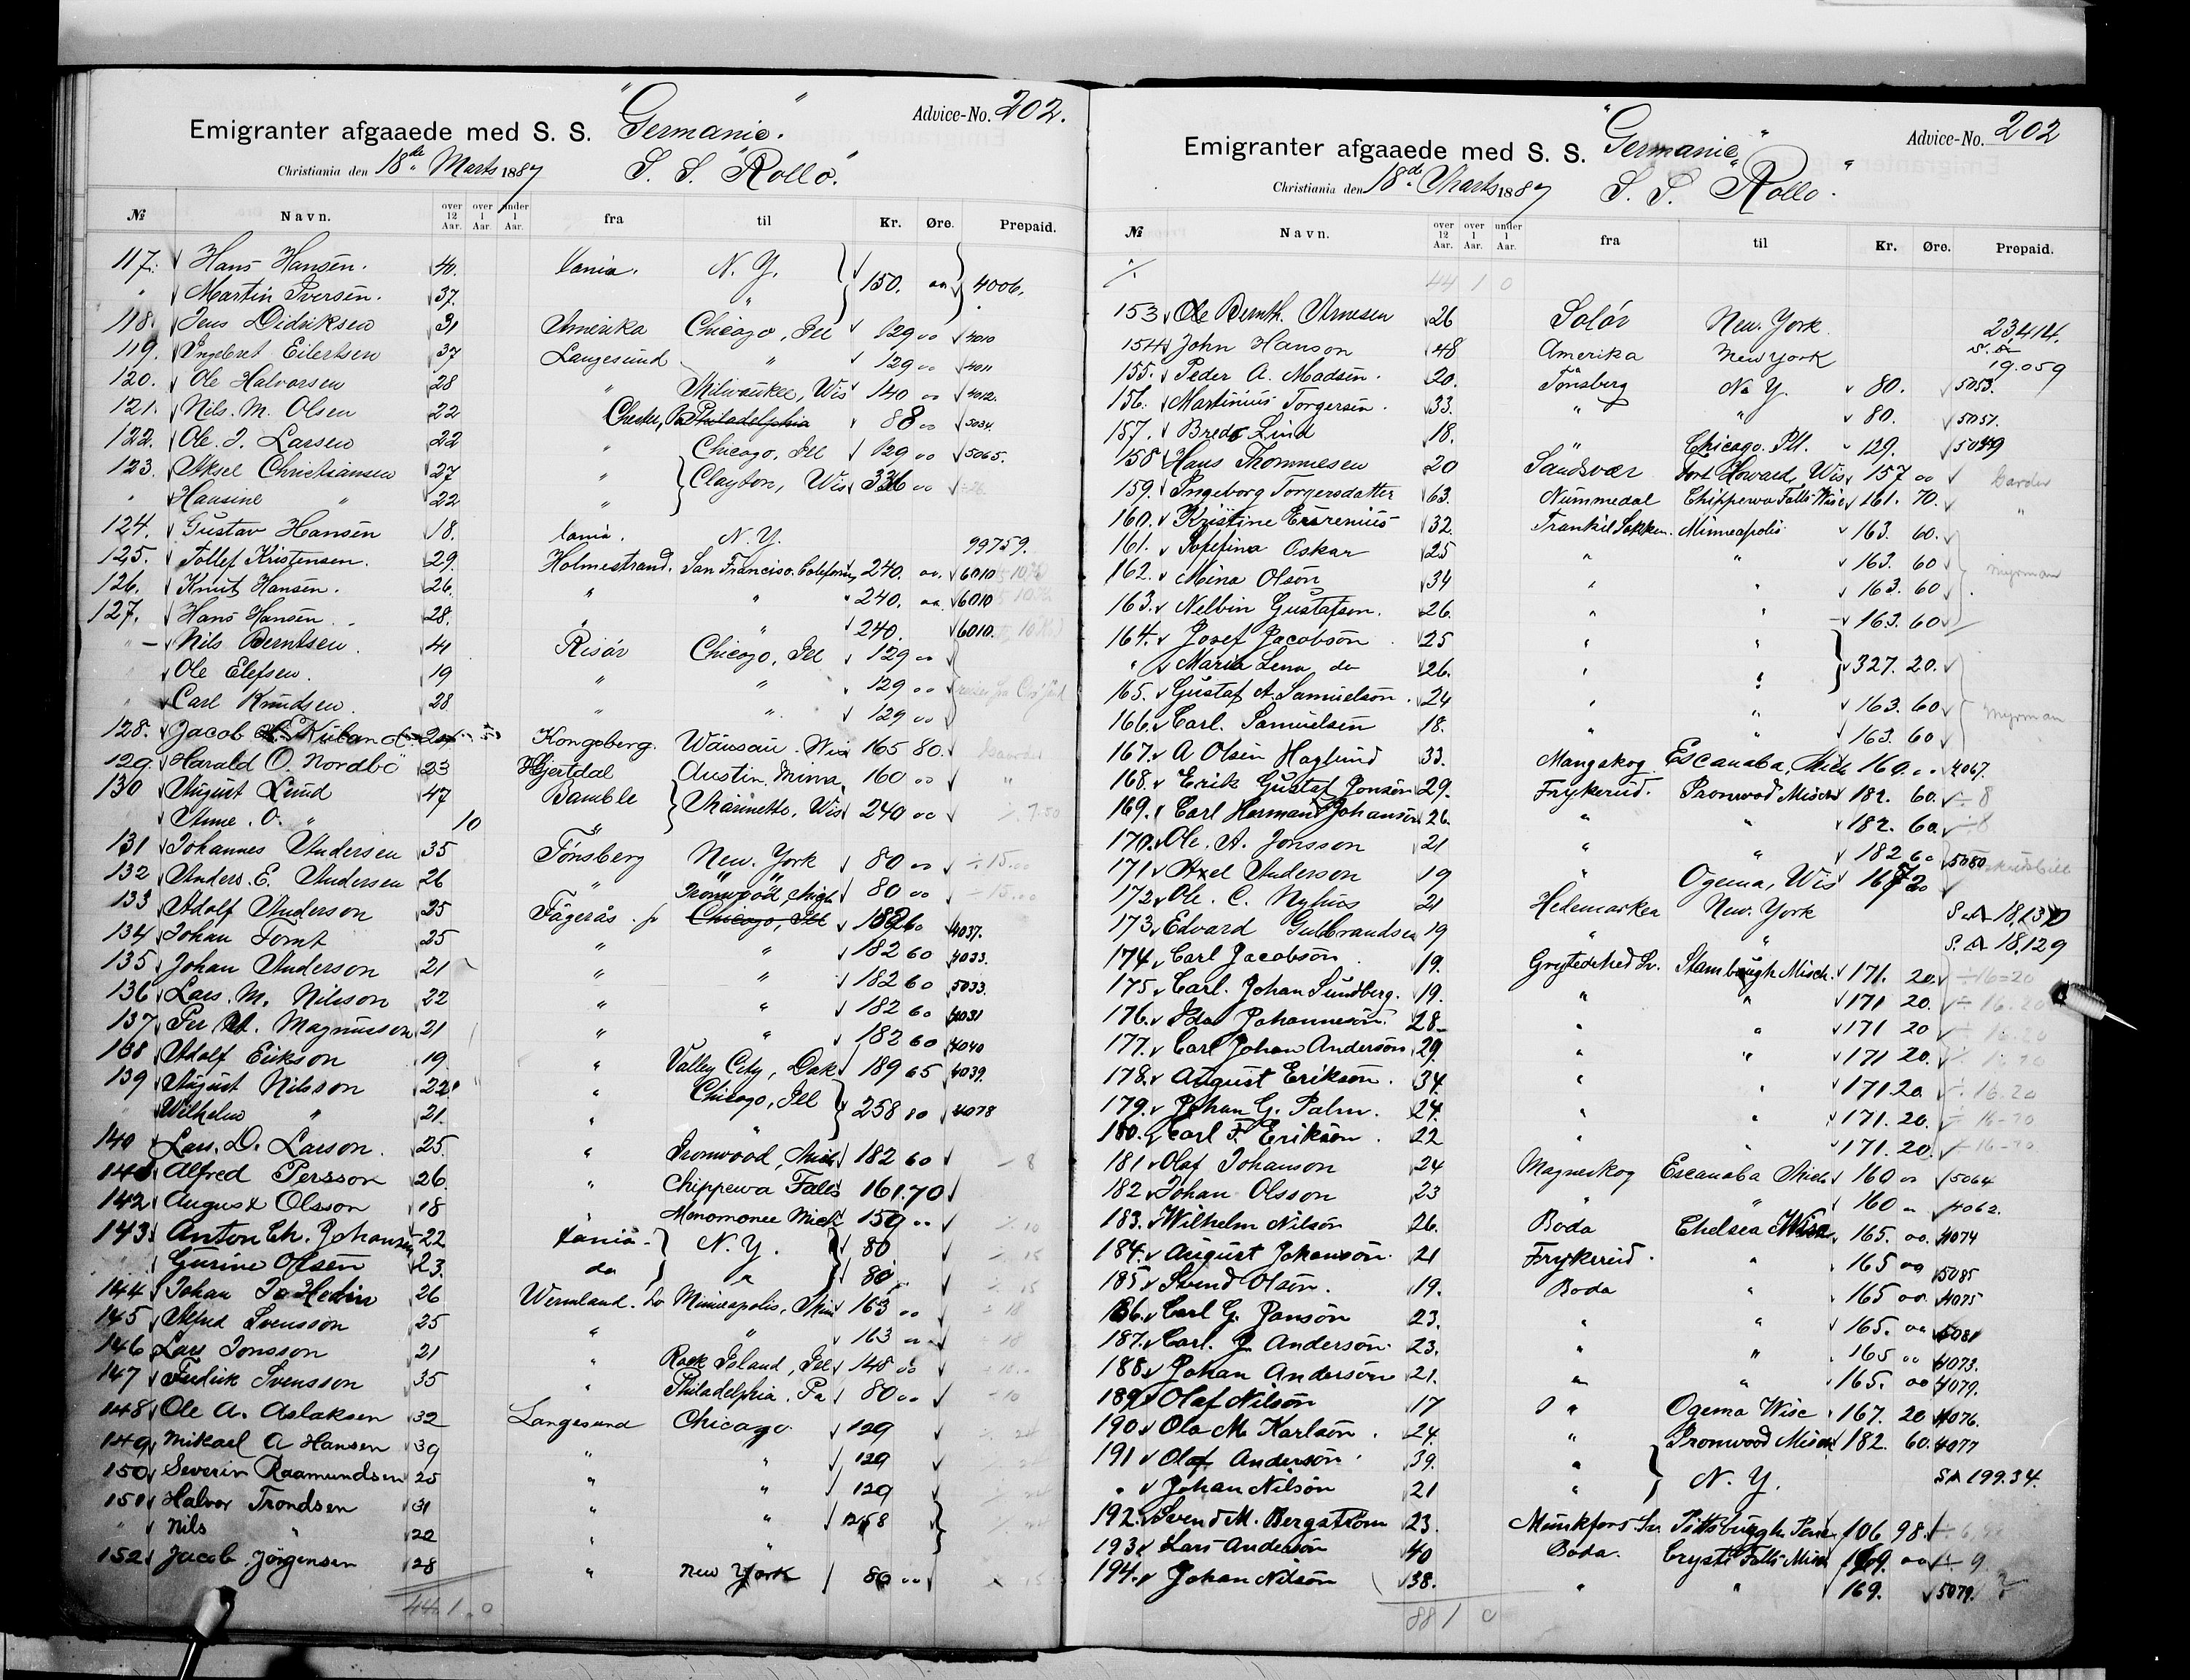 Emigranter afgaaede med S. S. "Germanic." Advice-No. 202.
Christiania den 18de Marts 1887 S. S. "Rollo".
№ Navn. over 12 Aar. over 1 Aar. under 1 Aar. fra til Kr. Øre. Prepaid.
117. Hans Hansen. 40. Xania. N. Y. 150. 00 4006.
" Martin Iversen. 37. "
118. Jens Didriksen 31 Amerika Chicago, Ill 129 00 4010
119. Ingebret Eilertsen 37 Langesund " 129 00 4011
120. Ole Halvorsen 28 " Milwaukee, Wis 140 00 4012.
121. Nils. M. Olsen 22 Chester, Pa Philadelphia 88 00 5034.
122. Ole. J. Larsen 22 " Chicago, Ill 129 00 5065.
123. Aksel Christiansen 27 " Clayton, Wis 336 00
" Hansine " 22 "
124. Gustav Hansen 18. Xania. N. Y. 99759.
125. Tollef Kristensen. 29. Holmestrand. San Francisco. California 240. 00. 6010
126. Knut Hansen. 26. " " 240. 00. 6010
127. Hans Hansen 28. " " 240. 6010.
" — Nils Berntsen. 41 Risør Chicago, Ill 129 00
Ole Elefsen. 19 " " 129 00
" Carl Knudsen 28 " " 129 00
128. Jacob Kongsberg. Wausau. Wis 165 80.
129. Harald O. Nordbö 23 Hjertdal Austin. Minna, 160 00 "
130 August Lund 47 Bamble Marinette, Wis 240 00 7.50
Anne. O. " 10 "
131 Johannes Andersen 35 Tönsberg New. York 80 00 ÷15.00
132 Anders. E. Andersen 26 " " 80 00 ÷15.00
133 Adolf Anderson 25 Fägerås Ironwood, Mich Chicago, Ill 182 60 4037.
134 Johan Tornt 25 " " 182 60 4033.
135 Johan Anderson 21 " " 182 60 5033.
136 Lars. M. Nilsson 22 " " 182 60 4031
137 Per A. Magnusson 21 " " 182 60 4040
138 Adolf Erikson 19 " Valley City, Dak 189 65 4039.
139 August Nilsson 22 " Chicago, Ill 258 00 4078
" Wilhelm " 21. " "
140 Lars. D. Larson. 25. " Ironwood, Mich 182 60 8
141 Alfred Persson 26. " Chippewa Falls 161.70
142 August Olsson 18 " Monomonee Mich 159 00 10
143. Anton Ch. Johansen 22 Xania. N. Y. 80 15
Gurine Olsen 23. do " 80 15
144 Johan Jo Hedin 26 Wermland. Sv Minneapolis, Min 163 00 ÷ 18
145 Alfred Svensson 25 " " 163 00 ÷ 18
146 Lars Jonsson 21 " Rock Island, Ill 148 00
147 Fredrik Svensson 35 " Philadelphia. Pa 80 00 10
148. Ole A. Aslaksen 32 Langesund Chicago. 129
149. Mikael A Hansen 39 " " 129
150. Severin Raamundsen 25 " " 129
151 Halvor Trondsen 31 " " 258
" Nils " 22 " "
152. Jacob Jörgensen 28 " New York 80 00
44. 1. 0
Emigranter afgaaede med S. S. "Germanic" Advice-No. 202
Christiania den 18de Marts 1887 S. S. "Rollo".
№ Navn. over 12 Aar. over 1 Aar. under 1 Aar. fra til Kr. Øre. Prepaid.
44 1 0
153 Ole Bernth. Arnesen 26 Solör New. York 23,414.
154 John Hanson 48 Amerika New York S. A 19.059
155. Peder A. Madsen. 20. Tönsberg N. Y. 80. 5053.
156. Martinius Torgersen. 33. " " 80. 5051.
157. Brede Lind 18. " Chicago. Ill. 129. 5049
158 Hans Thommesen 20 Sandsvær Fort Howard, Wis 157 00 Garder
159. Ingeborg Torgersdatter 63. Nummedal Chippewa Falls Wisc 161. 70. "
160. Kristine 32. Minneapolis 163. 60.
161. Josefina Oskar 25 " " 163. 60
162. Mina Olson 34 " " 163. 60 Myrman
163. Nelbin Gustafson. 26. " " 163. 60
164. Josef Jacobson 25 " " 327. 20.
" Maria Lena do 26. " "
165. Gustaf A. Samuelson. 24 " " 163. 60
166. Carl. Samuelsen 18. " " 163. 60 Myrman
167. A Olsen Haglund 33. Mangskog Escanaba, Mich 160. 00 4067.
168. Erik Gustaf Jonson 29. Frykerud. Ironwood Misch 182. 60. ÷ 8
169. Carl Hermand Johanson 26. " " 182. 60. ÷8
170. Ole. A. Jonsson 21 " " 182 60 5080
171 Axel Anderson 19 " Ogema, Wis 167 20
172 Ole. C. Nyhus 21 Hedemarken New. York S. A. 18,130
173. Edvard Gulbrandsen 19 " " S. A 18,129
174 Carl Jacobson 19. Stambaugh Misch. 171. 20. ÷16=20
175 Carl. Johan Sundberg. 19. " " 171 20. ÷ 16.20
176. Ida Johanneson. 28 " " 171 20 ÷ 16.20
177. Carl Johan Anderson 29. " " 171 20. ÷ 16.20
178. August Erikson. 34. " " 171.20 ÷ 16.20
179. Johan G. Palm. 24. " " 171. 20. ÷ 16-20
180. Carl F. Erikson. 22 " " 171. 20. ÷ 16-20
181 Olaf Johanson 24 Magneskog Escanaba Mich 160 00 5064
182 Johan Olsson 23 " " 160 " 4062.
183. Wilhelm Nilson 26. Boda Chelsea Wisc 165. 00. 4074
184. August Johanson. 21 Frykerud. " 165 00 5085
185 Svend Olson. 19. Boda " 165 00. 4075
186. Carl G. Janson 23. " " 165. 00 5081
187. Carl. J. Anderson. 23. " " 165 00 4073.
188. Johan Anderson 21. " " 165. 00 4079.
189 Olaf Nilson 17 " Ogema Wisc 167. 20 4076.
190. Ola M. Karlson. 24. " Ironwood Misch 182. 60. 4077
191 Olaf Anderson. 39. " N. Y. SA 199.34.
" Johan Nilson 21 "
192. Svend M. Bergström 23. Munkfors Sv. Pittsburgh Penn 106. 98. ÷ 6,98
193 Lars Anderson 40 Boda. Crystl Falls Mich 169. 00 ÷ 9
194. Johan Nilson 38. " " 169. 5079.
88 1 0